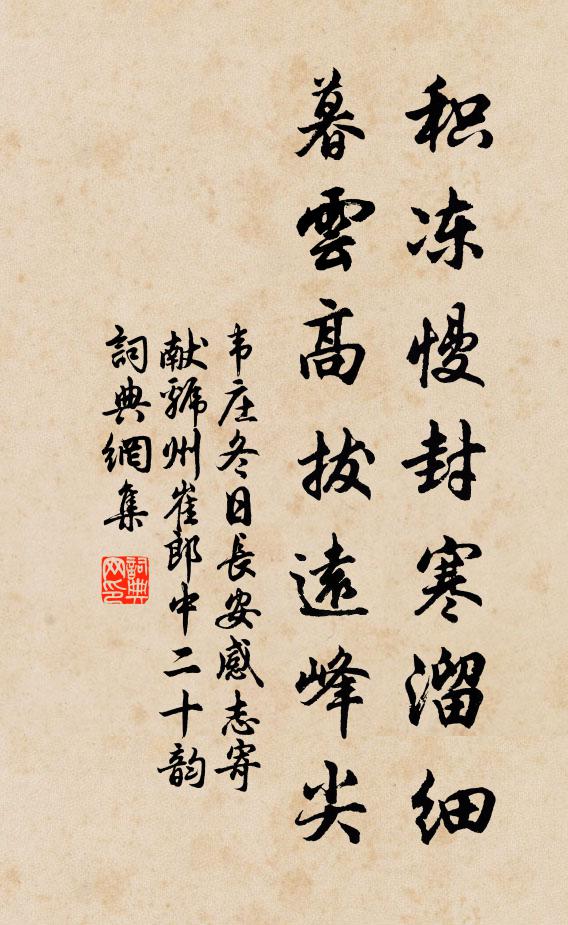 积冻慢封寒溜细
暮雲高拔遠峰尖
韦庄冬日長安感志寄
献虢州崔郎中二十韵
詞典網集
詞典
网印